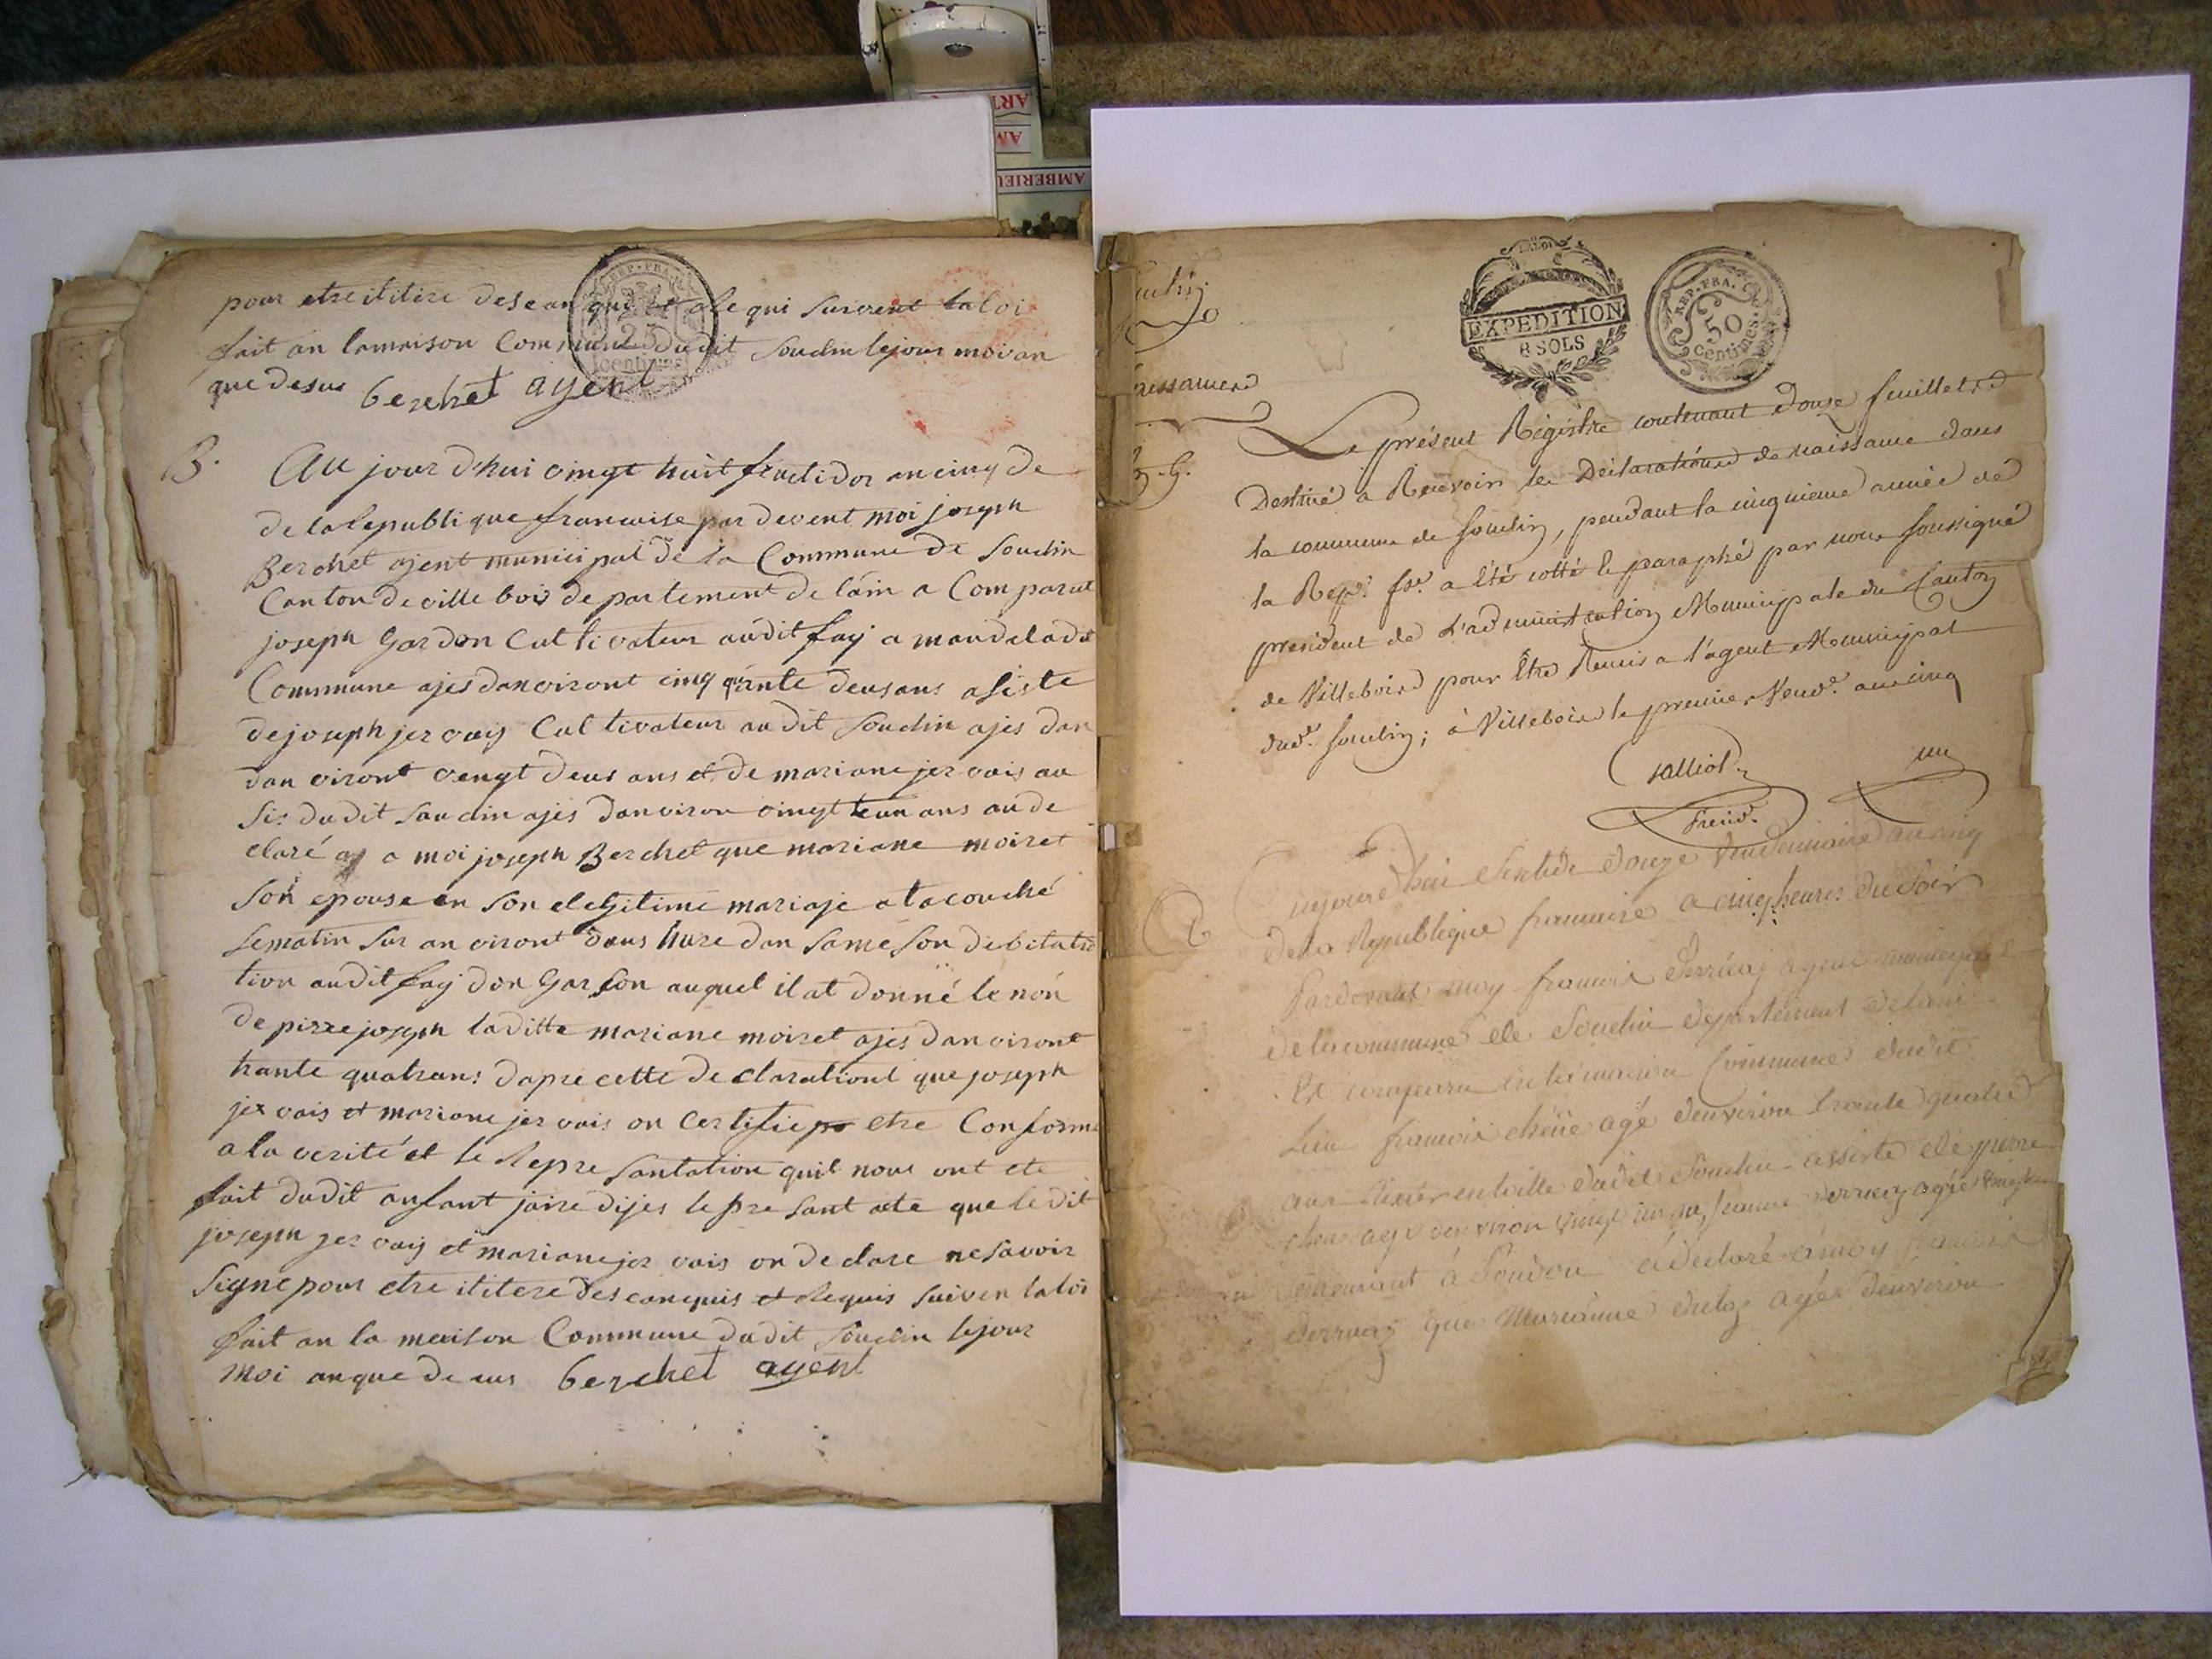 pour etre ititire des ean qui et ale qui suivent la loi
fait an lamaison Commune dudit soudin lejour moi an
que desus berchet agent
REP. FRA.
25
centimes
B.
Au jour d'hui vingt huit fructidor an cinq de
de la republique francoise par devent moi joseph
Berchet ajent municipal de la Commune de soudin
Canton de ville bois departement de lain a Comparut
joseph Gardon Cultivateur audit fay a mandeladit
Commune ajes danviront cinq quante deus ans asiste
de joseph jervais Cultivateur audit soudin ajes dan
dan viront vengt deus ans et de mariane jervais au
sis dudit soudin ajes danviron vingt un ans au de
claré a moi joseph Berchet que mariane moiret
son epouse en son elegitime mariaje a tacouché
se matin sur an viront deus hure dan same son debitatio
tion audit fay d'on Garson auquel il at donné le nón
de pirre joseph laditte mariane moiret ajes danviront
trante quatrans dapre cette declarationt que joseph
jervais et mariane jervais on Certifie etre Conforme
a la verité et le Repre santation quil nous ont ete
fait dudit anfant jaire dijes le pre sant ate que le dit
joseph jervais et mariane jervais on declare ne savoir
signe pour etre ititere des eanquis et Requis suiven la loi
fait an la maison Commune dudit soudin lejour
moi anque de sus berchet agent
LA LOI
EXPEDITION
8 SOLS
REP. FRA.
50
centimes.
Le présent Régistre contenant douze feuilletes
Destiné a Recevoir les Déclarations de naissance dans
la commune de Soudin, pendant la cinquieme année de
la Rep. fse. a été cotté & paraphé par nous soussigné
president de L'administration Municipale du Canton
de Villebois pour être Remis a l'agent Municipal
dud. Soudin; à Villebois le premier Vend. an cinq
un
Presid.
aujourdhui Sextidi douze vendemiaire an cinq
de la Republique francaise a cinq heures du soir
Pardevant moy francois Servaz agent municipal
de la commune de Soudin departement de lain
Est comparu en la maison Commune dudit
Lieu francois agé denviron trante quatre
ans dudit Soudin assisté de pierre
agé denviron vingt
demeurant à a declaré a moy francois
que Marianne agée denviron